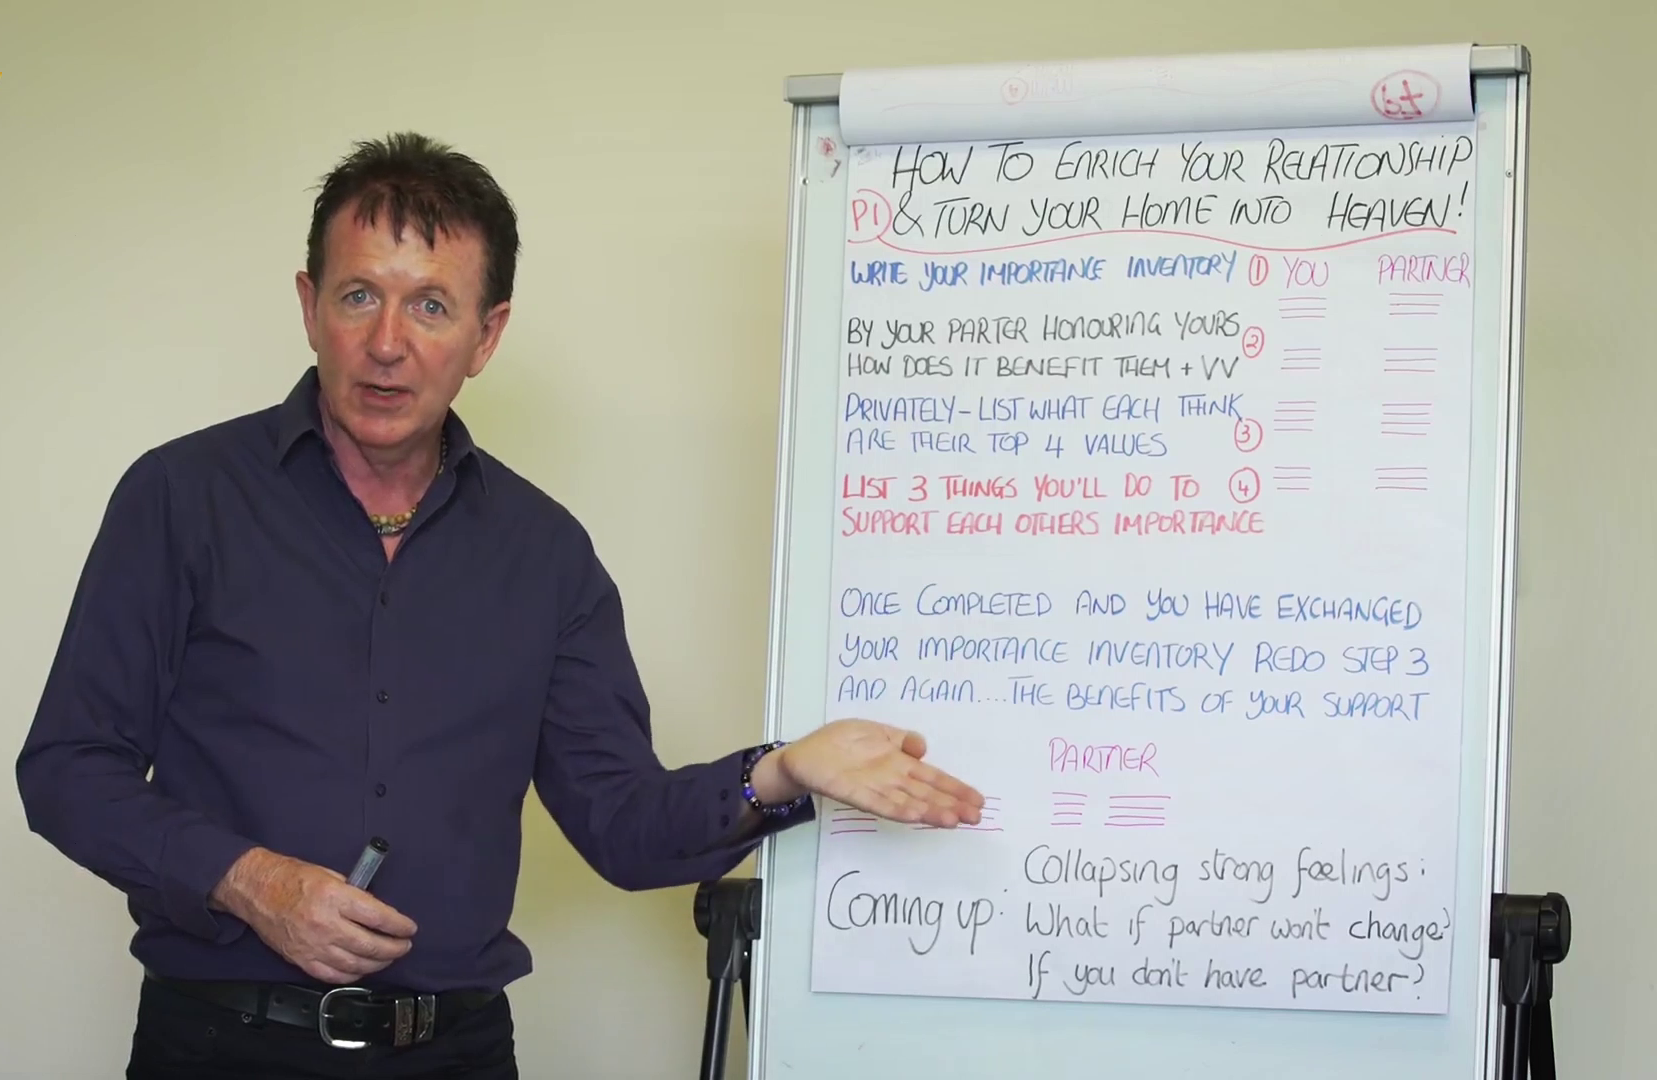 HOW TO ENRICH YOUR RELATIONSHIP
P1 & TURN YOUR HOME INTO HEAVEN!
WRITE YOUR IMPORTANCE INVENTORY 1 YOU PARTNER
BY YOUR PARTER HONOURING YOURS
HOW DOES IT BENEFIT THEM + VV 2
PRIVATELY - LIST WHAT EACH THINK
ARE THEIR TOP 4 VALUES 3
LIST 3 THINGS YOU'LL DO TO 4
SUPPORT EACH OTHERS IMPORTANCE
ONCE COMPLETED AND YOU HAVE EXCHANGED
YOUR IMPORTANCE INVENTORY REDO STEP 3
AND AGAIN....THE BENEFITS OF YOUR SUPPORT
PARTNER
Coming up:
Collapsing strong feelings:
What if partner won't change?
If you don't have partner?